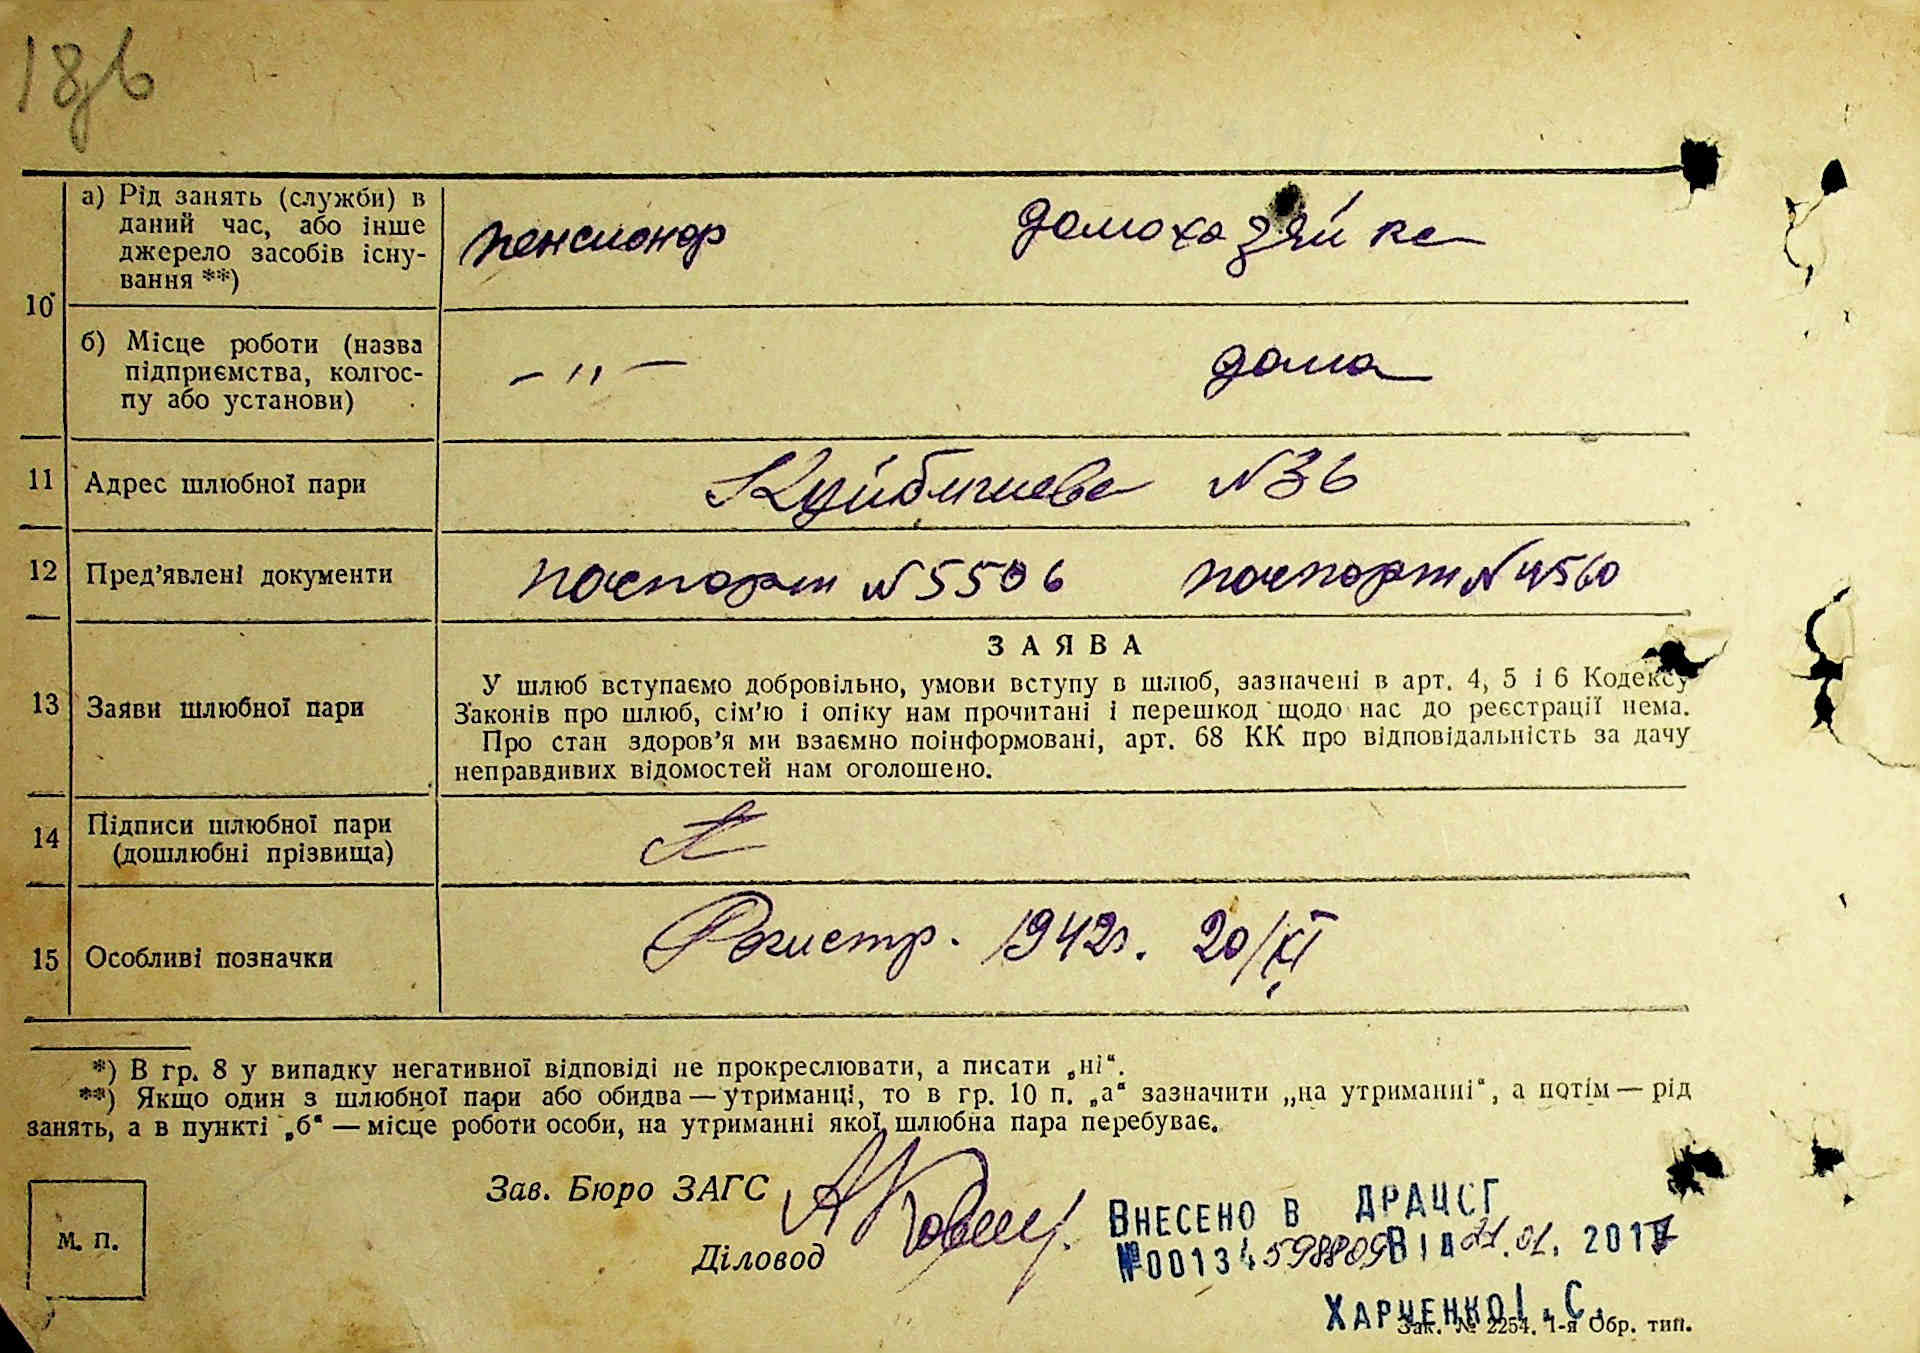 18
а) Рід занять (служби) в
даний час, або інше
джерело засобів існу-
вання **)
пенсионер
домохазяйка
10
б) Місце роботи (назва
підприємства, колгос-
пу або установи)
— „ —
дома
11 Адрес шлюбної пари
Куйбышева №36
12 Пред’явлені документи
паспорт №5506 паспорт №4560
ЗАЯВА
13 Заяви шлюбної пари
У шлюб вступаємо добровільно, умови вступу в шлюб, зазначені в арт. 4, 5 і 6 Кодексу
Законів про шлюб, сім’ю і опіку нам прочитані і перешкод щодо нас до реєстрації нема.
Про стан здоров’я ми взаємно поінформовані, арт. 68 КК про відповідальність за дачу
неправдивих відомостей нам оголошено.
14 Підписи шлюбної пари
(дошлюбні прізвища)
15 Особливі позначки
Регистр. 1942г. 20/XI
*) В гр. 8 у випадку негативної відповіді не прокреслювати, а писати „ні“.
**) Якщо один з шлюбної пари або обидва — утриманці, то в гр. 10 п. „а“ зазначити „на утриманні“, а потім — рід
занять, а в пункті „б“ — місце роботи особи, на утриманні якої шлюбна пара перебуває.
Зав. Бюро ЗАГС
Діловод
М. П.
ВНЕСЕНО В ДРАЦСГ
№00134598809 Від 21.01.2017
ХАРЧЕНКО І. С.
Зак. № 2254. 1-я Обр. тип.